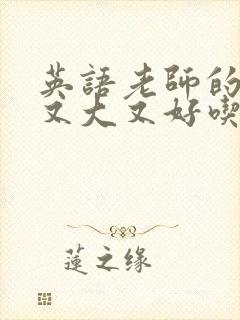 英語老師的
又大又好喫
蓮之缘